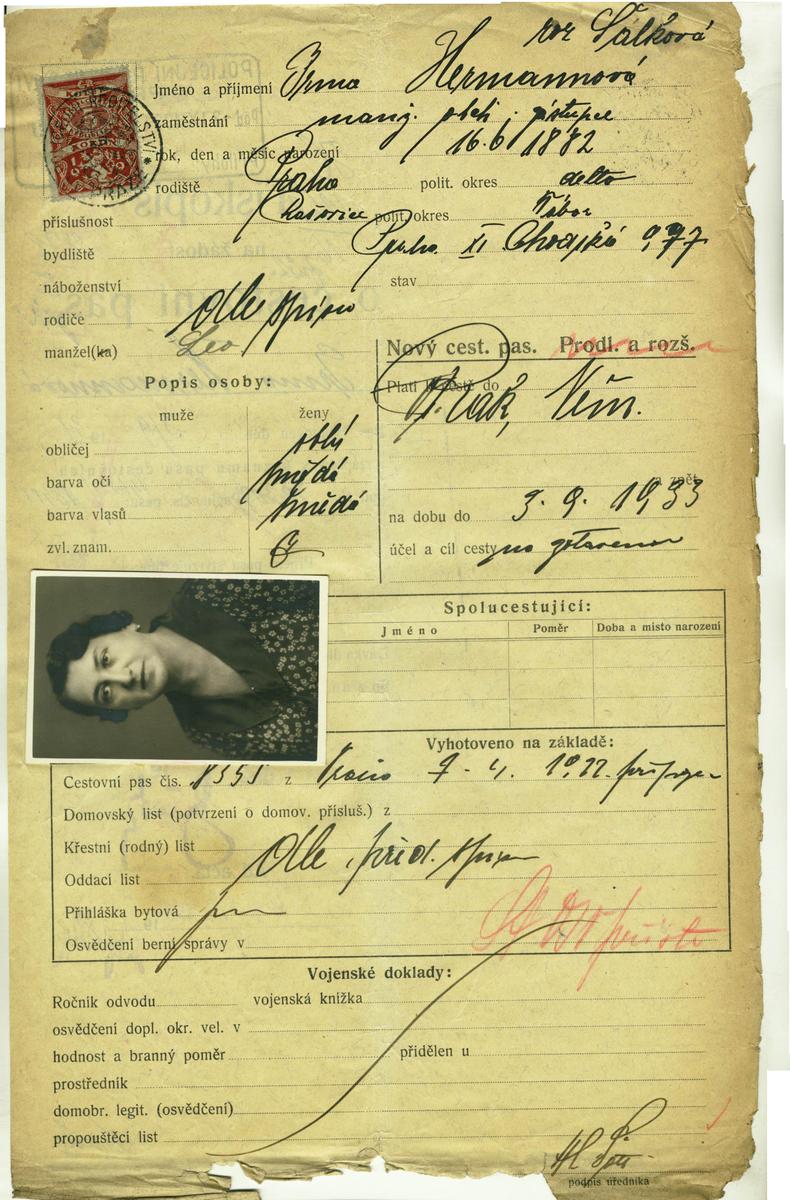 roz Šálková
Jméno a příjmení Irma Hermannová
zaměstnání manž. obch. zástupce
rok, den a měsíc narození 16.6 1882
rodiště Praha polit. okres detto
příslušnost polit. okres Tábor
bydliště Praha XI 977
náboženství stav
rodiče dle spisu
manžel(ka) Leo
Nový cest. pas. Prodl. a rozš.
Popis osoby:
Platí do Rak, Něm.
muže ženy
obličej oblý
barva očí hnědá
barva vlasů hnědá
zvl. znam.
a zpět
na dobu do 3. 9. 1933
účel a cíl cesty na zotavenou
Spolucestující:
Jméno Poměr Doba a místo narození
Vyhotoveno na základě:
Cestovní pas čís. z
Domovský list (potvrzení o domov. přísluš.) z
Křestní (rodný) list
Oddací list dle před. spisu
Přihláška bytová
Osvědčení berní správy v
Vojenské doklady:
Ročník odvodu vojenská knížka
osvědčení dopl. okr. vel. v
hodnost a branný poměr přidělen u
prostředník
domobr. legit. (osvědčení)
propouštěcí list
podpis úředníka